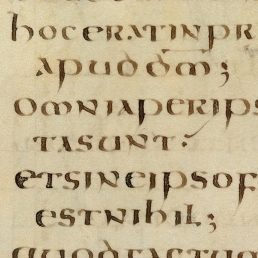 hoceratinpr
apuddm;
omniaperips
tasunt.
etsineipsof
estnihil;
quodfactum